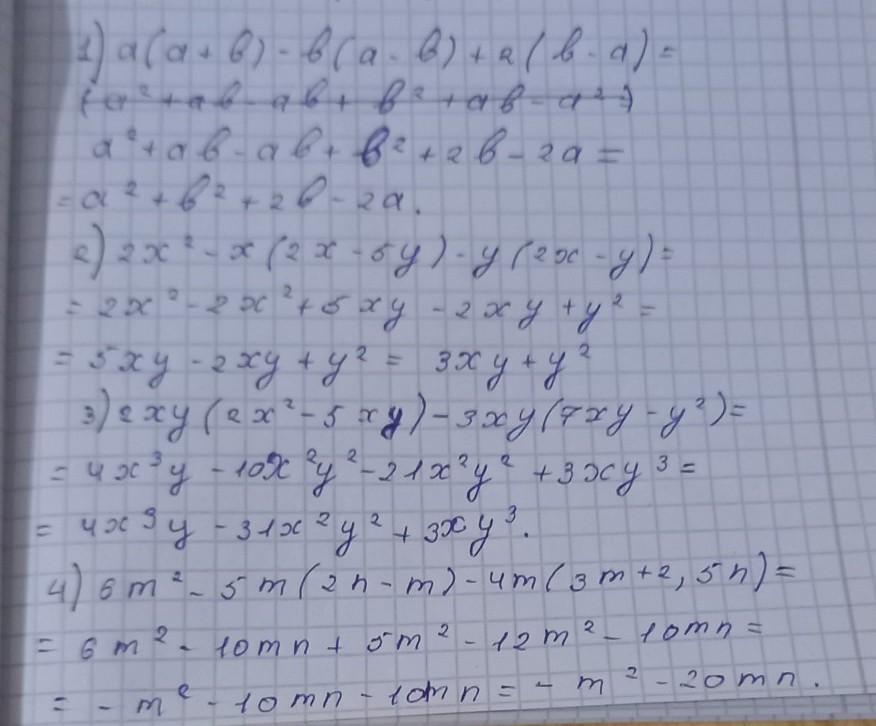 1) a(a + b) - b(a - b) + 2(b - a) =
(a² + ab - ab + b² + ab - a² =)
a² + ab - ab + b² + 2b - 2a =
= a² + b² + 2b - 2a.
2) 2x² - x(2x - 5y) - y(2x - y) =
= 2x² - 2x² + 5xy - 2xy + y² =
= 5xy - 2xy + y² = 3xy + y²
3) 2xy(2x² - 5xy) - 3xy(7xy - y²) =
= 4x³y - 10x²y² - 21x²y² + 3xy³ =
= 4x³y - 31x²y² + 3xy³.
4) 6m² - 5m(2n - m) - 4m(3m + 2,5n) =
= 6m² - 10mn + 5m² - 12m² - 10mn =
= - m² - 10mn - 10mn = - m² - 20mn.